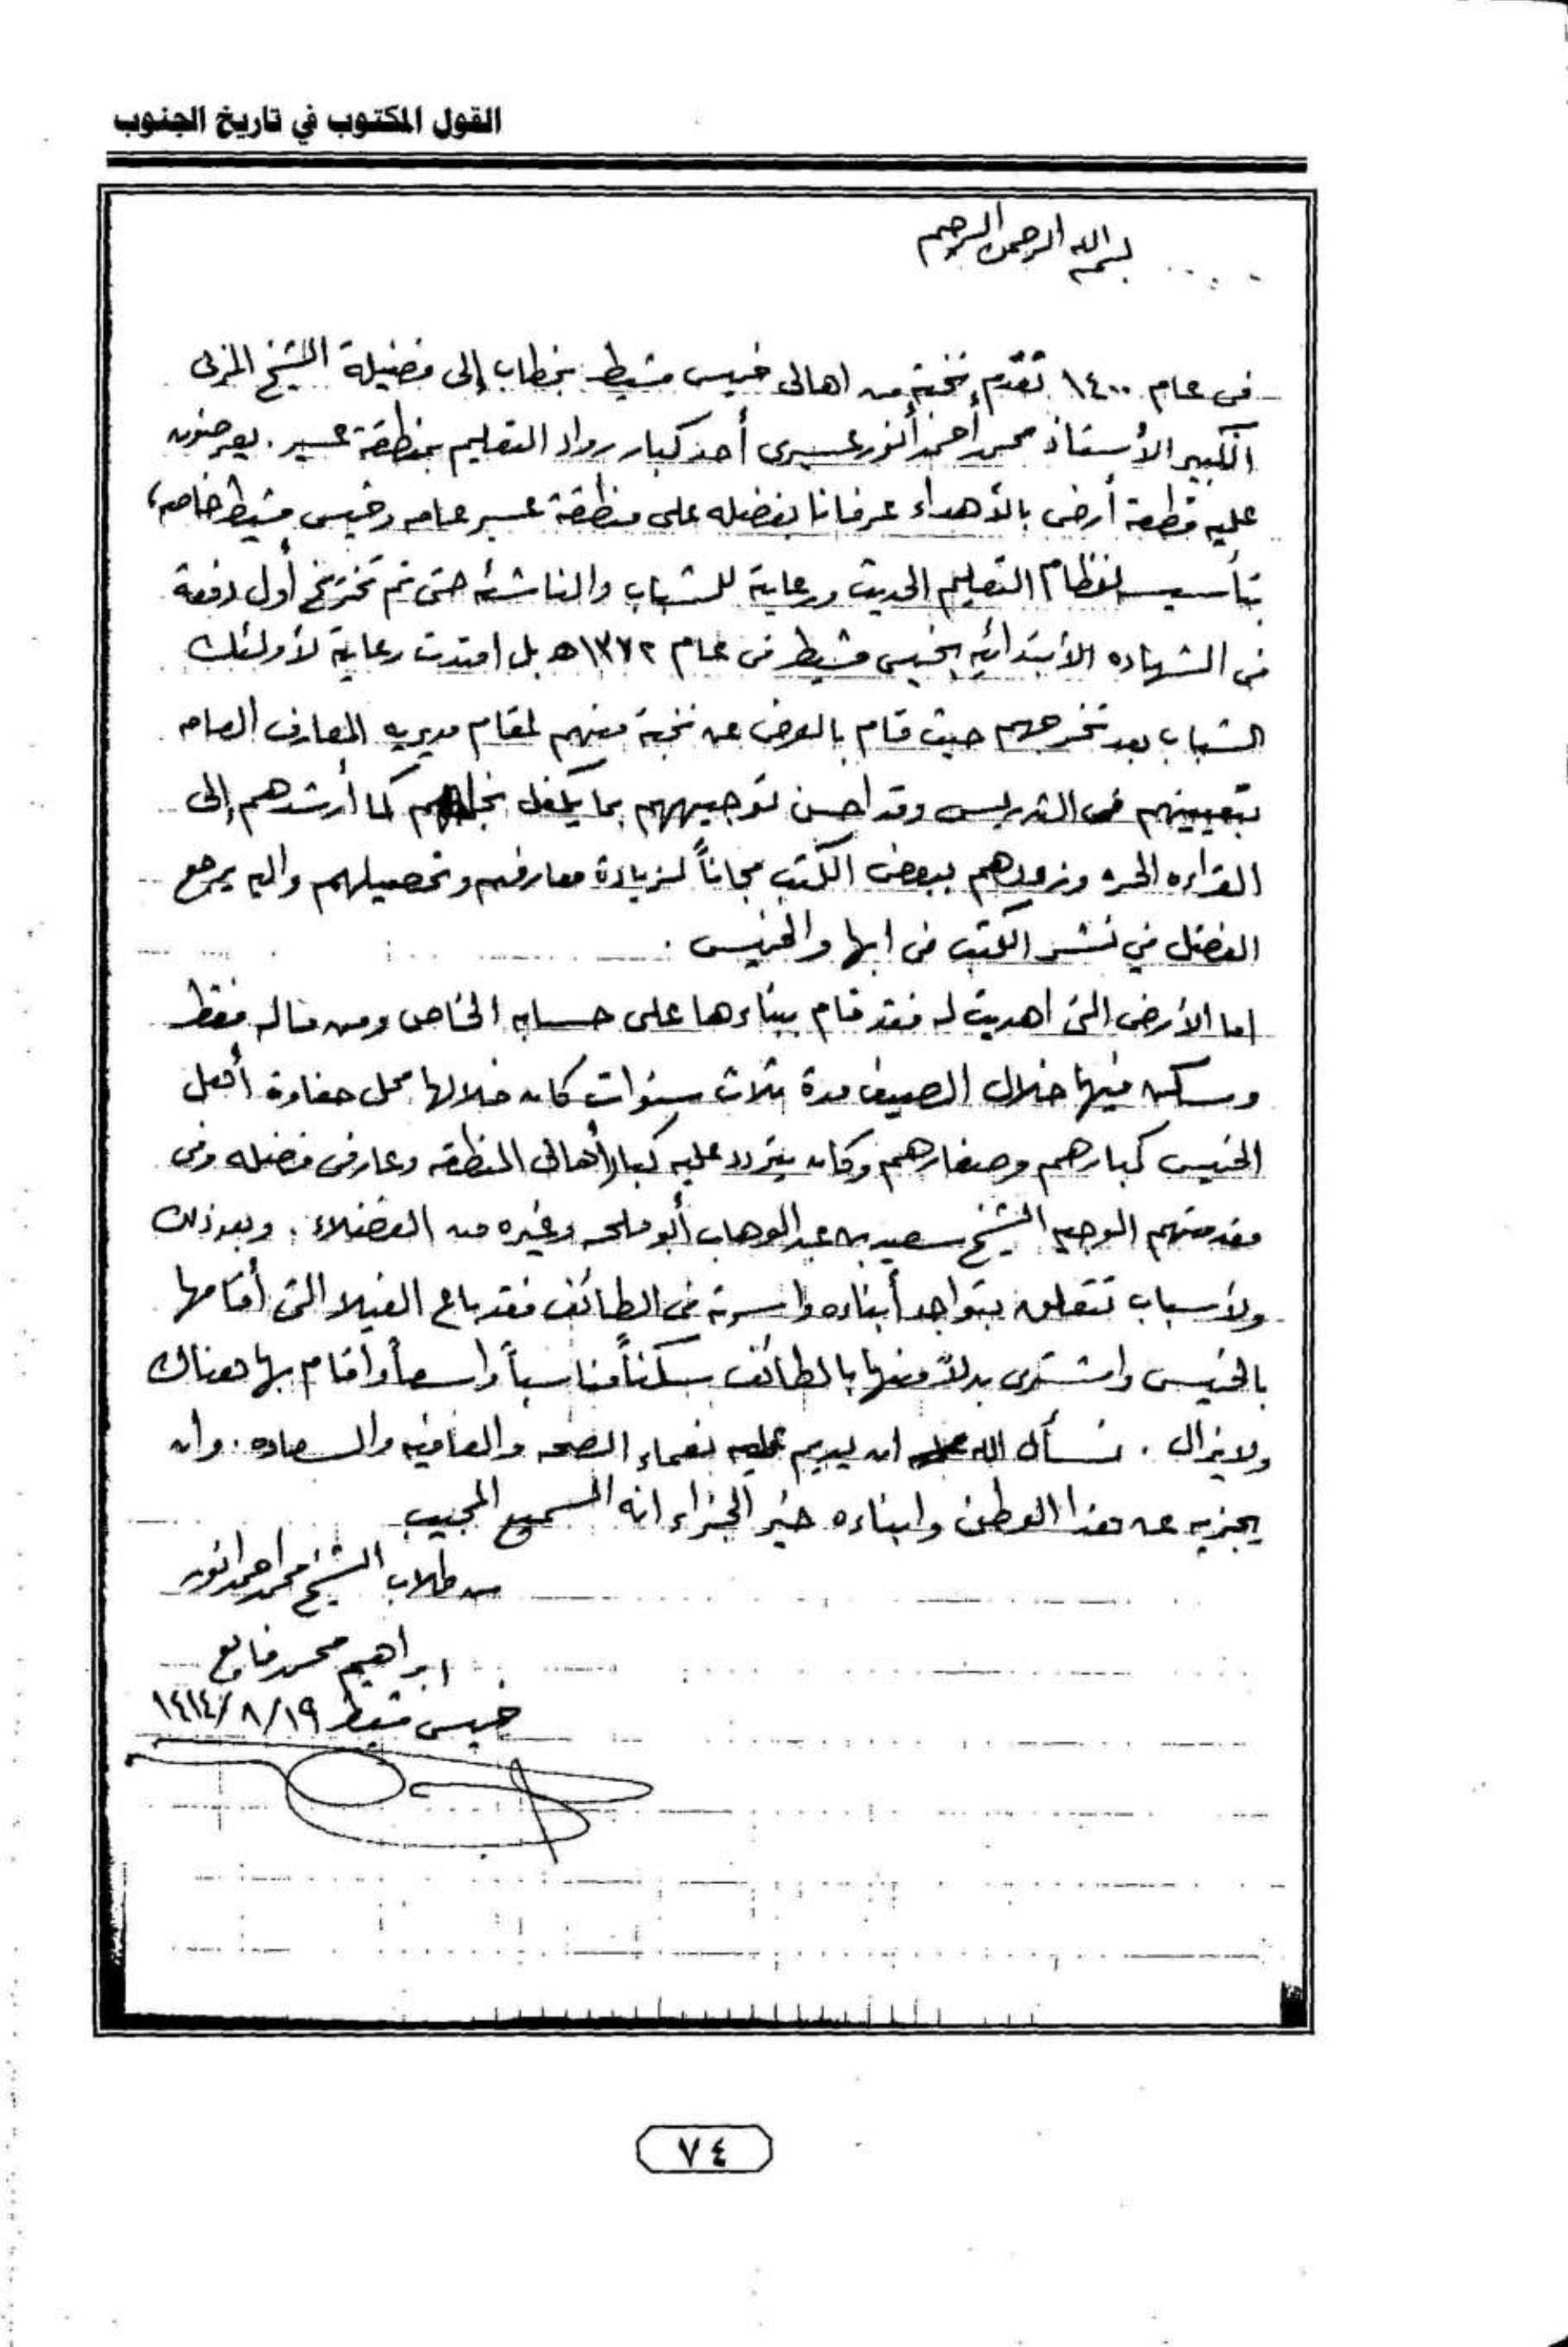 القول المكتوب في تاريخ الجنوب
بسم الله الرحمن الرحيم
فى عام ١٤٠٠ تقدم نخبة من اهالى خميس مشيط بخطاب إلى فضيلة الشيخ المربى
الكبير الأستاذ محمد أحمد أنور عسيرى أحد كبار رواد التعليم بمنطقة عسير. يعرضون
عليه قطعة أرض بالأهداء عرفانا بفضله على منطقة عسير عامه وخميس مشيط خاصه،
بتأسيس نظام التعليم الحديث ورعاية للشباب والناشئه حتى تم تخريج أول دفعة
فى الشهاده الأبتدائيه بخميس مشيط فى عام ١٣٧٢هـ بل امتدت رعاية لأولئك
الشباب بعد تخرجهم حيث قام بالعرض عن نخبة منهم لمقام مديريه المعارف العامه
بتعيينهم فى التدريس وقد احسن توجيههم بما يكفل نجاحهم كما أرشدهم إلى
القراءه الحره وزودهم ببعض الكتب مجاناً لزيادة معارفهم وتحصيلهم واليه يرجع
الفضل في نشر الكتب فى ابها والخميس .
اما الأرض التى اهديت له فقد قام ببناءها على حسابه الخاص ومن ماله فقط
وسكن فيها خلال الصيف مدة ثلاث سنوات كان خلالها محل حفاوة أهل
الخميس كبارهم وصغارهم وكان يتردد عليه كبار أهالى المنطقه وعارفى فضله وفى
مقدمتهم الوجيه الشيخ سعيد بن عبدالوهاب أبو ملحه وغيره من الفضلاء. وبعد ذلك
ولأسباب تتعلق بتواجد أبناءه واسرته فى الطائف فقد باع الفيلا التى أقامها
بالخميس واشترى بدلاً منها بالطائف سكناً مناسباً واسعاً واقام بها هناك
ولايزال . نسأل الله ان يديم عليه نعماء الصحه والعافيه والسعاده. وان
يجزيه عن هذا الوطن وابناءه خير الجزاء انه السميع المجيب
من طلاب الشيخ محمد احمد انور
ابراهيم محمد فايع
خميس مشيط ١٤١٤/٨/١٩
٧٤